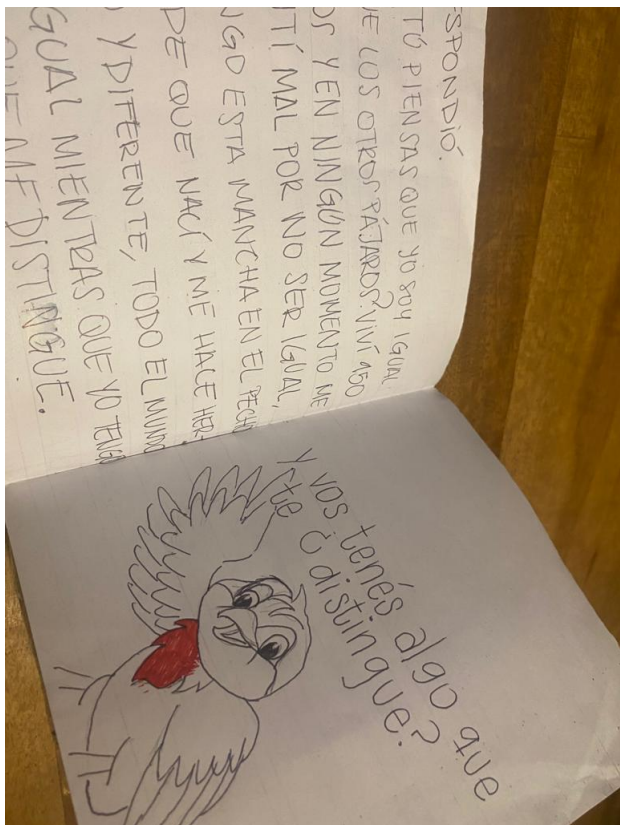 ESPONDIÓ.
TÚ PIENSAS QUE YO SOY IGUAL
E LOS OTROS PÁJAROS? VIVÍ
OS Y EN NINGÚN MOMENTO ME
TÍ MAL POR NO SER IGUAL,
NGO ESTA MANCHA EN EL PECHO
DE QUE NACÍ Y ME HACE HER-
Y DIFERENTE, TODO EL MUNDO
GUAL MIENTRAS QUE YO TENGO
QUE ME DISTINGUE.
Y vos tenés algo que
te ¿ distingue?